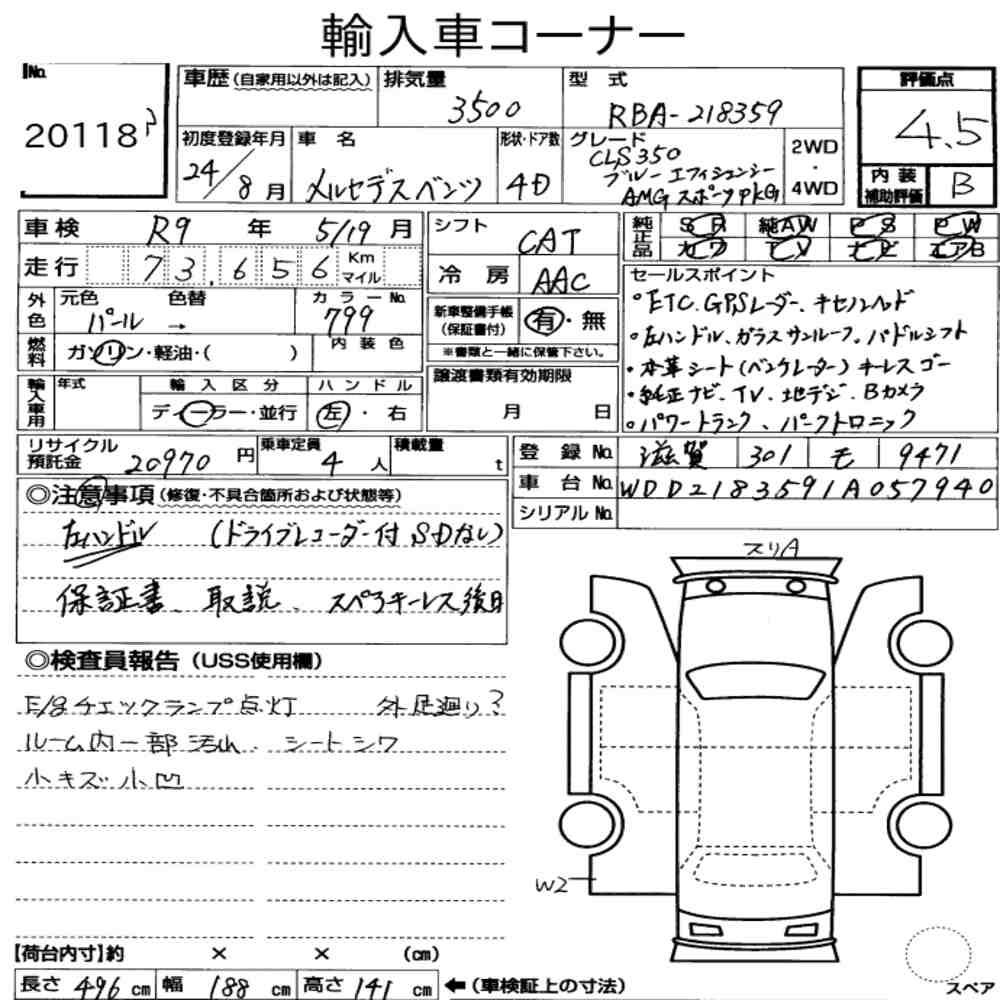 輸入車コーナー
No. 20118
車歴 (自家用以外は記入)
排気量 3500
型式 RBA-218359
評価点 4.5
初度登録年月 24/8月
車名 メルセデスベンツ
形状・ドア数 4D
グレード CLS350
ブルーエフィシェンシー
AMGスポーツPKG
2WD・4WD
内装補助評価 B
車検 R9年 5/19月
シフト CAT
純正品 SR 純AW PS PW
カワ TV ナビ エアB
走行 73,656 Km マイル
冷房 AAC
セールスポイント
外色 元色 パール 色替 → カラーNo. 799
新車整備手帳(保証書付) 有・無
※書類と一緒に保管下さい。
・ETC.GPSレーダー.キセルヘッド
・左ハンドル、ガラスサンルーフ.パドルシフト
燃料 ガソリン・軽油・( )
内装色
・本革シート(ベンチレーター)キーレスゴー
譲渡書類有効期限
月 日
・純正ナビ.TV.地デジ.Bカメラ
・パワートランク、パークトロニック
輸入車用 年式 輸入区分 ハンドル
ディーラー・並行 左・右
リサイクル預託金 20970円
乗車定員 4人
積載量 t
登録No. 滋賀 301 モ 9471
車台No. WDD2183591A057940
シリアルNo.
◎注意事項 (修復・不具合箇所および状態等)
左ハンドル (ドライブレコーダー付 SDなし)
保証書、取説、スペアキーレス後日
スリA
◎検査員報告 (USS使用欄)
E/gチェックランプ点灯 外足廻りサ
ルーム内一部汚れ、シートシワ
小キズ小凹
W2
【荷台内寸】約 × × (cm)
長さ 496 cm 幅 188 cm 高さ 141 cm ←(車検証上の寸法)
スペア